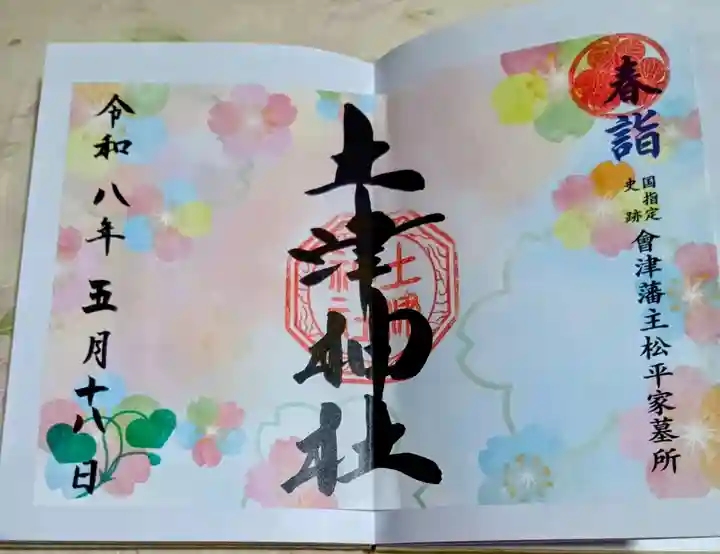 春詣
国指定
史跡
會津藩主松平家墓所
土津神社
土津
神社
令和八年五月十八日